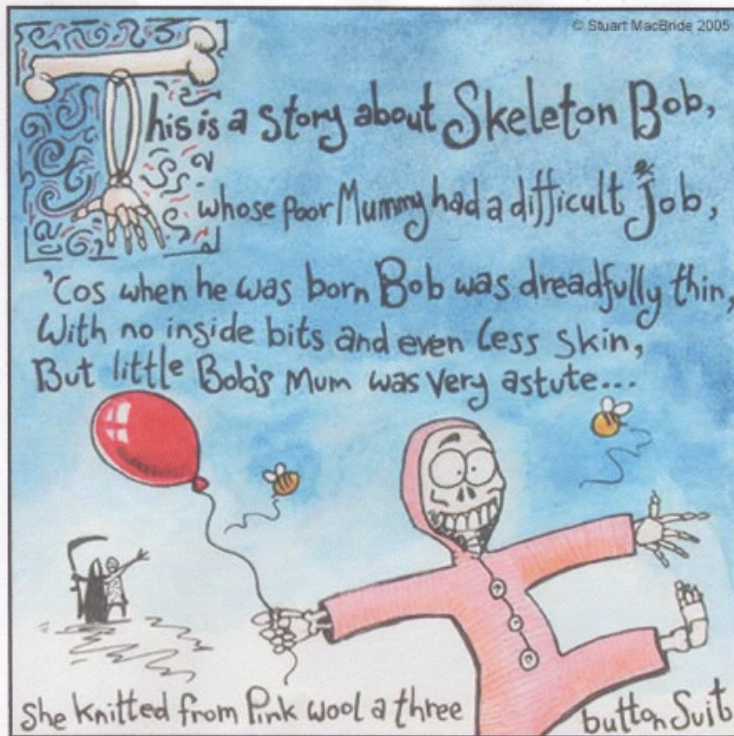 © Stuart MacBride 2005
This is a story about Skeleton Bob,
whose poor Mummy had a difficult job,
'Cos when he was born Bob was dreadfully thin,
With no inside bits and even less skin,
But little Bob's Mum was very astute...
She knitted from Pink wool a three button Suit